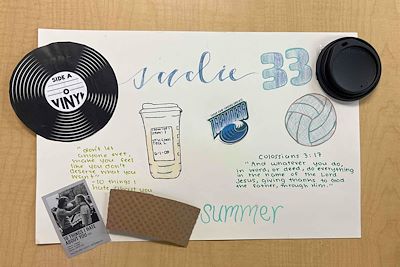 SIDE A
VINYL
sudie
33
Colossians 3:17
"don't let
anyone, ever,
make you feel
like you don't
deserve what you
want"
10 things I
hate about you
"And whatever you do,
in word, or deed, do everything
in the name of the Lord
Jesus, giving thanks to God
the father, through Him."
10 THINGS I HATE
ABOUT YOU
summer